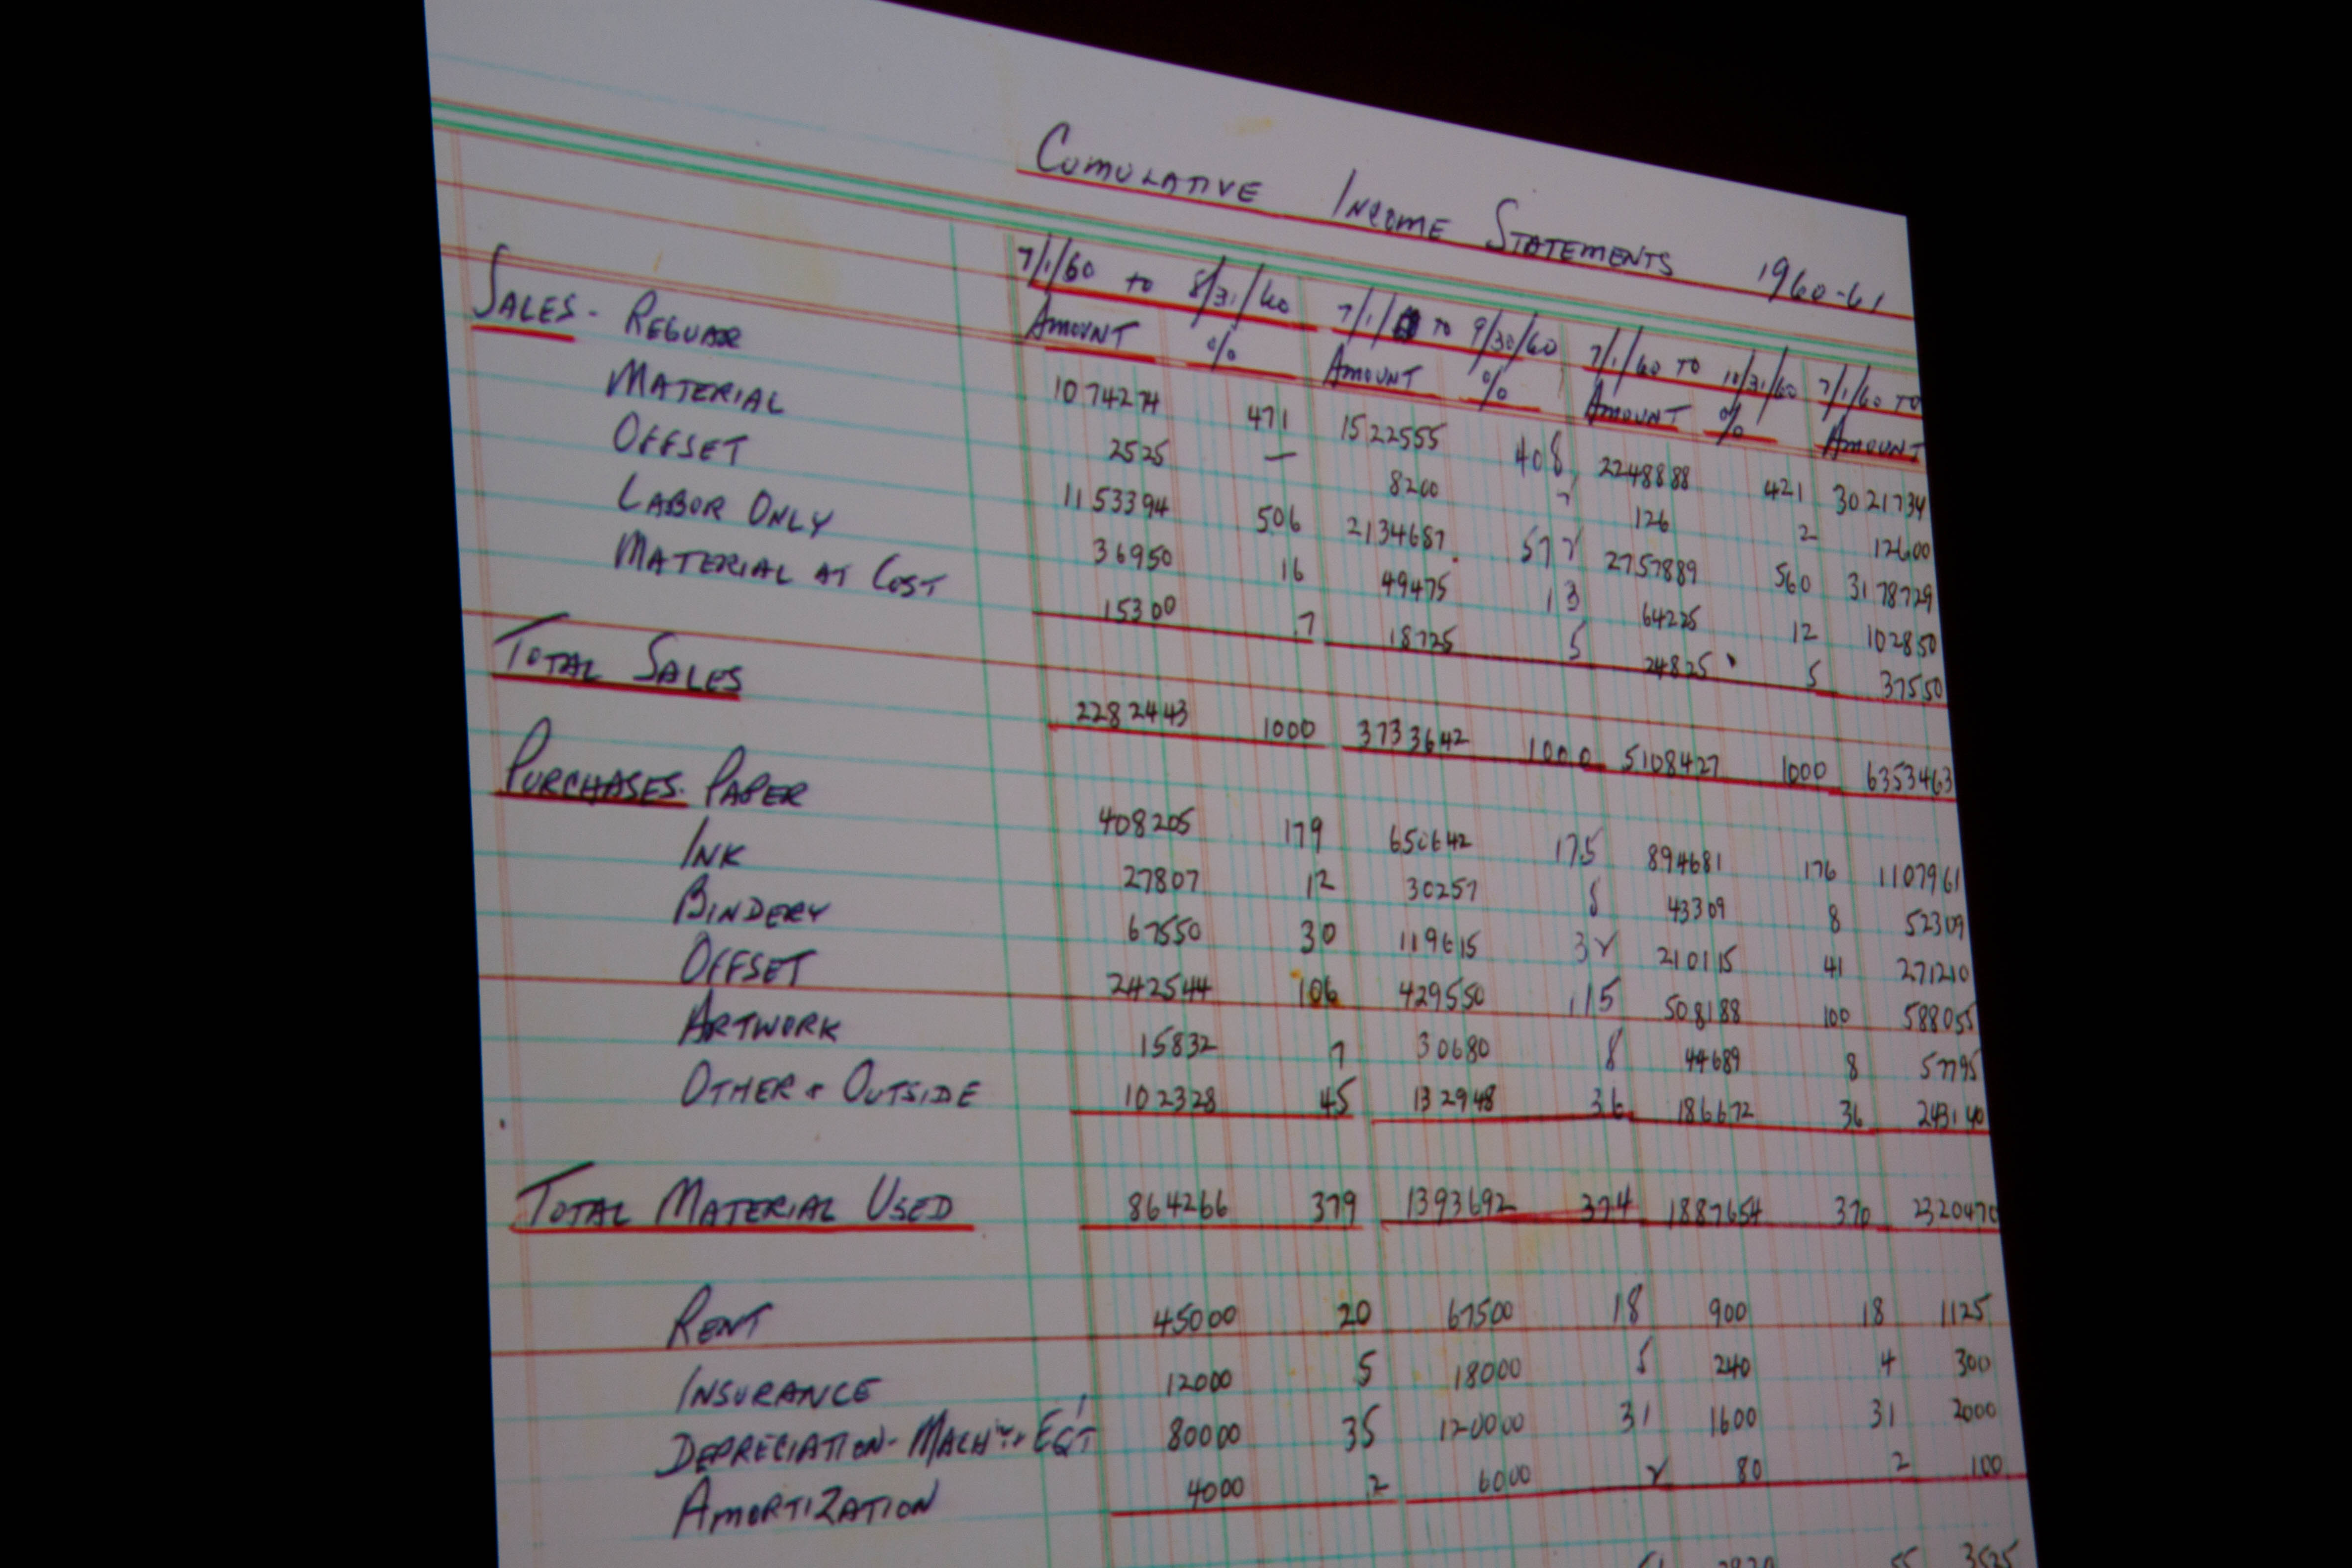 CUMULATIVE INCOME STATEMENTS 1960-61
7/1/60 to 8/31/60 7/1/ TO 9/30/60 7/1/60 TO 10/31/60 7/1/60 TO
AMOUNT % AMOUNT % AMOUNT % AMOUNT
SALES - REGULAR 1074274 471 1522555 408 2248888 421 3021734
MATERIAL 2525 — 8200 126 2 12600
OFFSET 1153394 506 2134687 572 2757889 560 3178729
LABOR ONLY 36950 16 49475 13 64225 12 102850
MATERIAL AT COST 15300 7 18725 5 24825 5 37550
TOTAL SALES 2282443 1000 3733642 1000 5108427 1000 6353463
PURCHASES. PAPER 408205 179 650642 175 894681 176 1107961
INK 27807 12 30257 8 43309 8 52309
BINDERY 67550 30 119615 32 210115 41 271210
OFFSET 242544 106 429550 115 508188 100 588055
ARTWORK 15832 7 30680 8 44689 8 57795
OTHER & OUTSIDE 102328 45 132948 36 186672 36 243140
TOTAL MATERIAL USED 864266 379 1393692 374 1887654 370 2320470
RENT 45000 20 67500 18 900 18 1125
INSURANCE 12000 5 18000 5 240 4 300
DEPRECIATION - MACH'Y & EQT 80000 35 120000 31 1600 31 2000
AMORTIZATION 4000 2 6000 2 80 2 100
55 3525